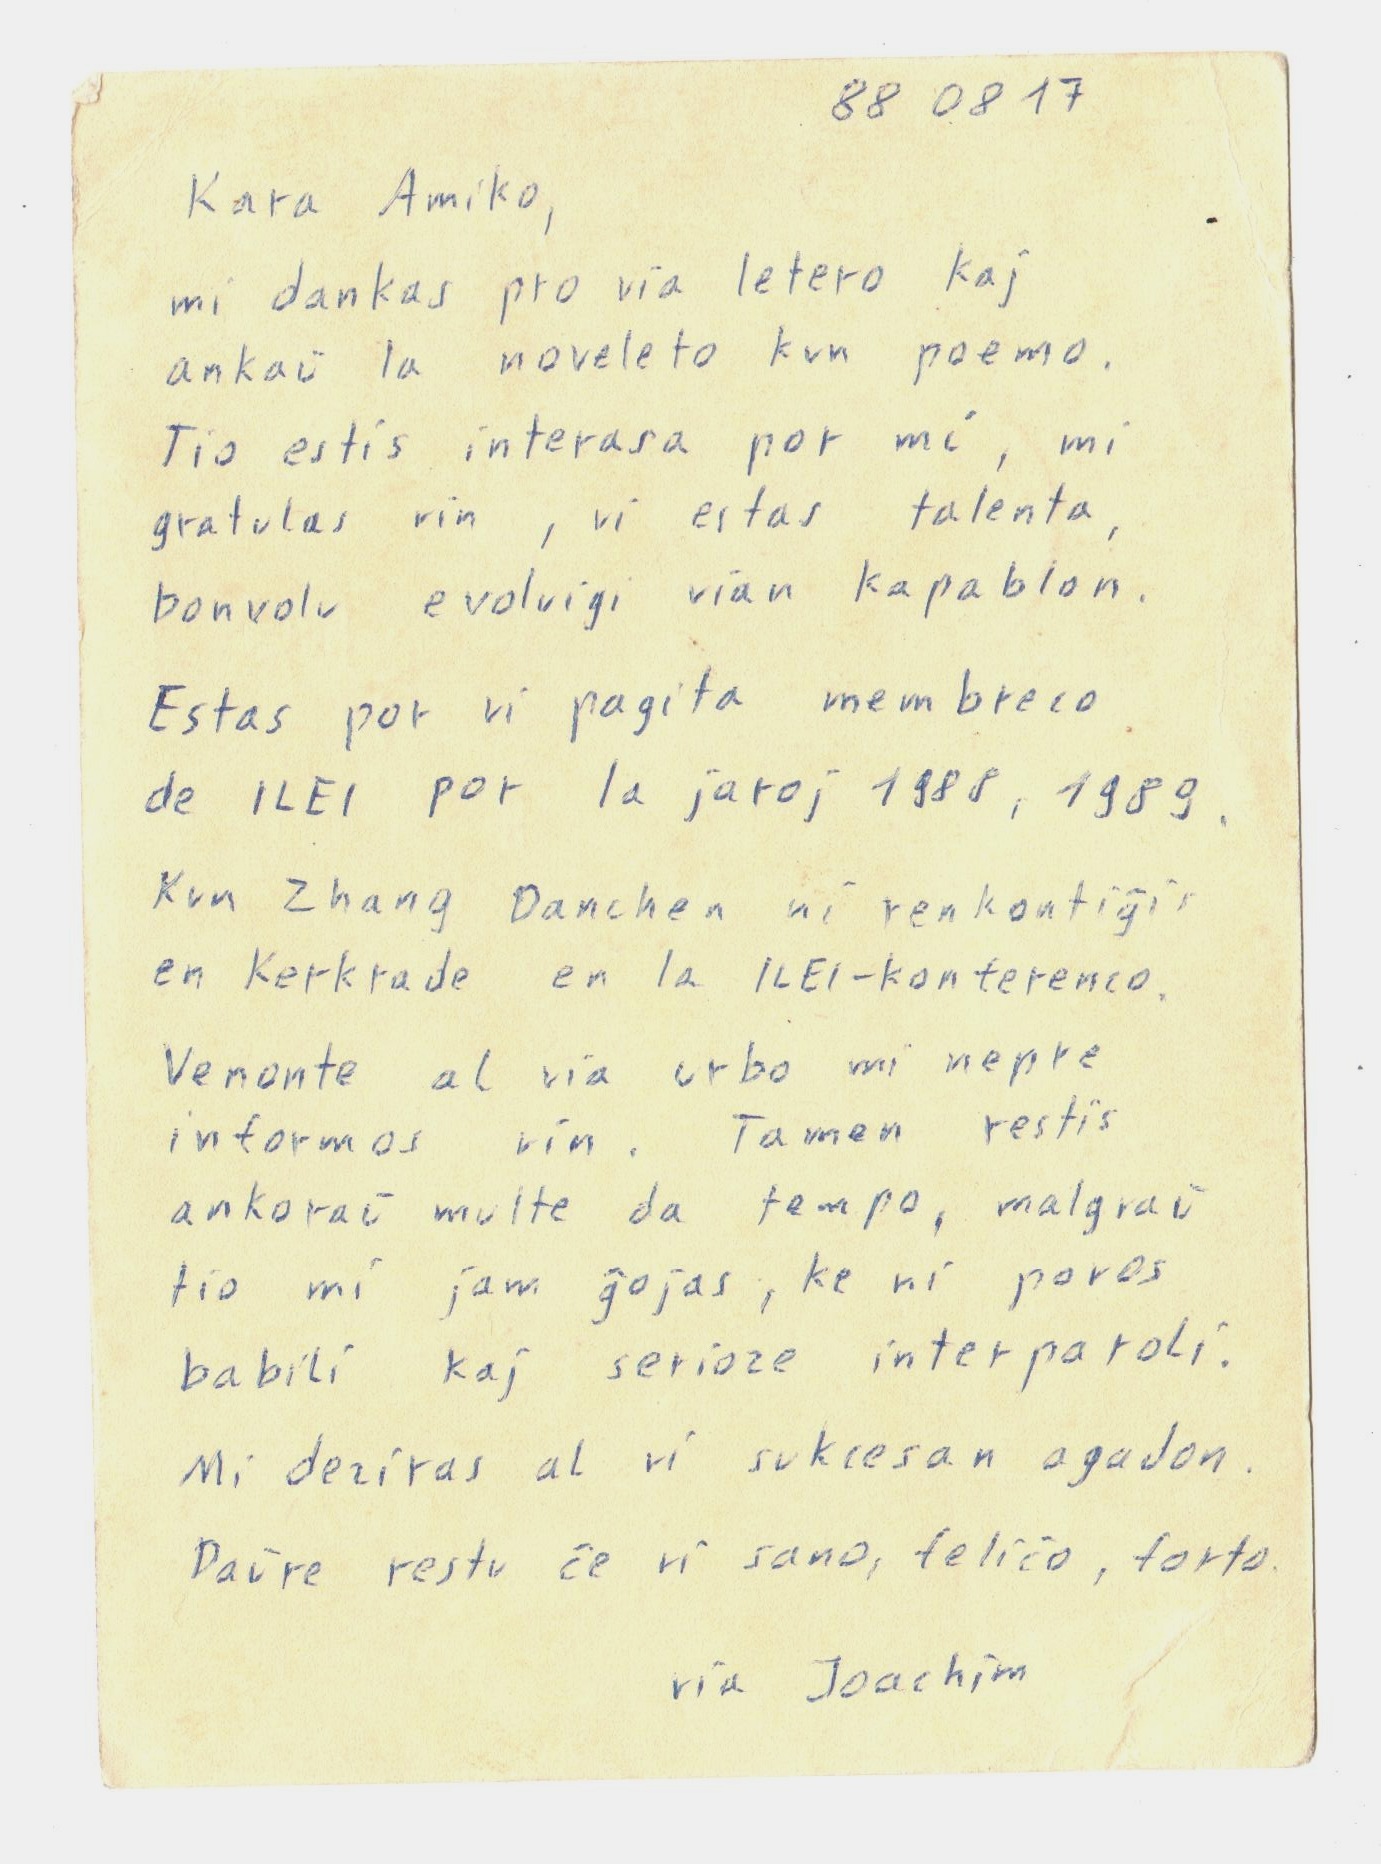 88 08 17
Kara Amiko,
mi dankas pro via letero kaj
ankaŭ la noveleto kun poemo.
Tio estis interasa por mi, mi
gratulas vin, vi estas talenta,
bonvolu evoluigi vian kapablon.
Estas por vi pagita membreco
de ILEI por la jaroj 1988, 1989.
Kun Zhang Danchen ni renkontiĝis
en Kerkrade en la ILEI-konferenco.
Venonte al via urbo mi nepre
informos vin. Tamen restis
ankoraŭ multe da tempo, malgraŭ
tio mi jam ĝojas, ke ni povos
babili kaj serioze interparoli.
Mi deziras al vi sukcesan agadon.
Daŭre restu ĉe vi sano, feliĉo, forto.
via Joachim